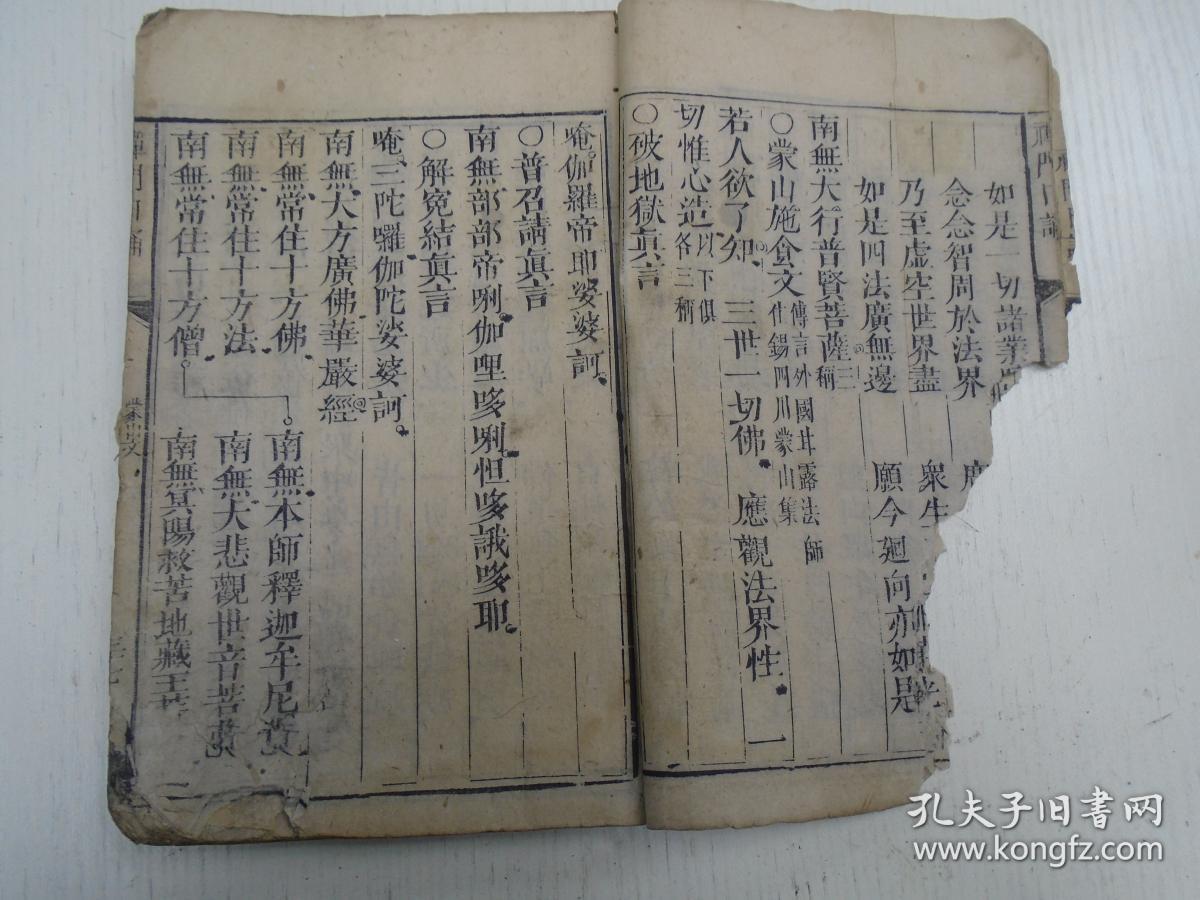 禪門日誦
如是一切諸業
念念智周於法界
衆生
乃至虛空世界盡
願今廻向亦如是
如是四法廣無邊
南無大行普賢菩薩三稱
○蒙山施食文傳言外國甘露法師
什錫四川蒙山集
若人欲了知、三世一切佛。應觀法界性。一
切惟心造以下俱
各三稱
○破地獄眞言
唵。伽羅帝耶娑婆訶。
○普召請眞言
南無部部帝唎。伽哩哆唎。怛哆誐哆耶。
○解冤結眞言
唵、三陀囉。伽陀娑婆訶。
南無大方廣佛華嚴經
南無常住十方佛
南無本師釋迦牟尼
南無常住十方法
南無大悲觀世音菩
南無常住十方僧。
南無冥陽救苦地藏王
禪門日誦
蒙山文
孔夫子旧书网
www.kongfz.com